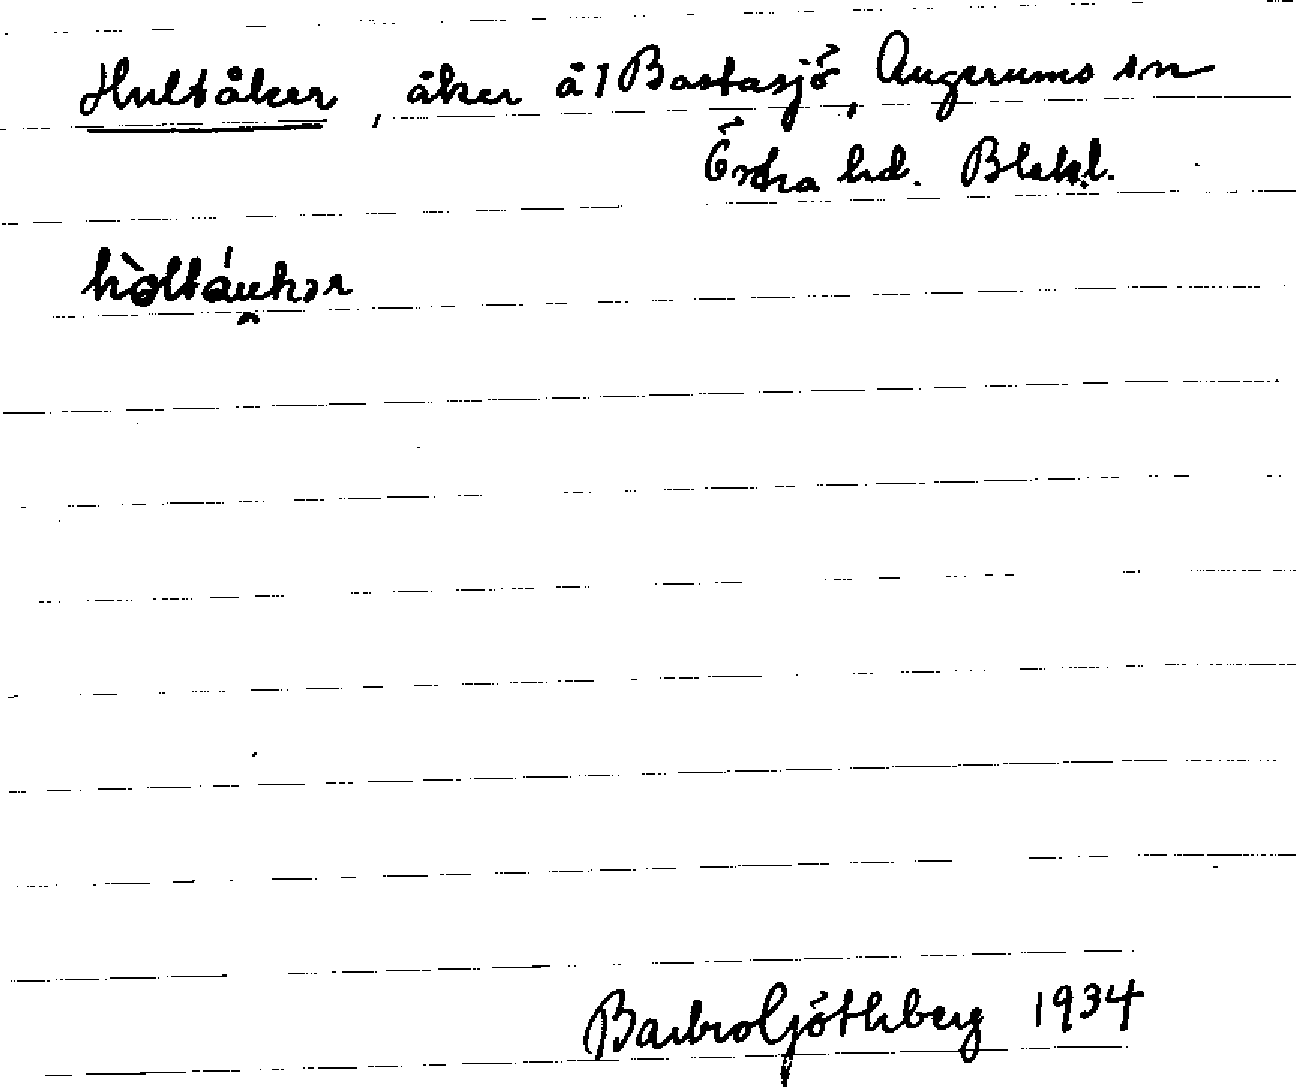 Hultåker, åker å 1 Bastasjö, Augerums sn
Östra hd. Blek.l.
Barbro Göthberg 1934